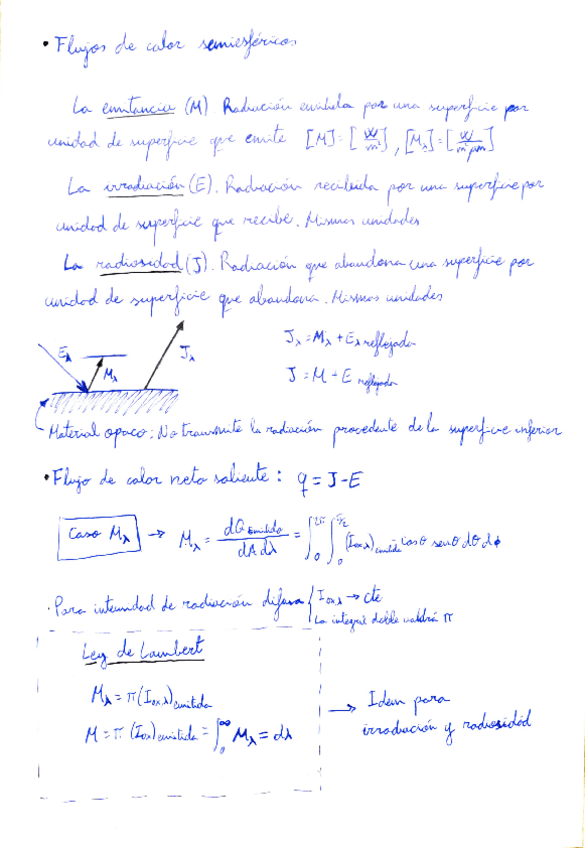 • Flujos de calor semiesféricos
La emitancia (M). Radiación emitida por una superficie por
unidad de superficie que emite [M]=[W/m²], [Mλ]=[W/m²μm]
La irradiación (E). Radiación recibida por una superficie por
unidad de superficie que recibe. Mismas unidades
La radiosidad (J). Radiación que abandona una superficie por
unidad de superficie que abandona. Mismas unidades
Eλ Mλ Jλ
Jλ = Mλ + Eλ reflejada
J = M + E reflejada
Material opaco: No transmite la radiación procedente de la superficie inferior
• Flujo de calor neto saliente: q = J - E
Caso Mλ → Mλ = dQ emitida / dA dλ = ∫₀^2π ∫₀^π/2 (Iαλ)emitida cosθ senθ dθ dϕ
· Para intensidad de radiación difusa { Iαλ → cte
La integral doble valdrá π
Ley de Lambert
Mλ = π (Iαλ)emitida
M = π (Iα)emitida = ∫₀^∞ Mλ = dλ
→ Idem para
irradiación y radiosidad